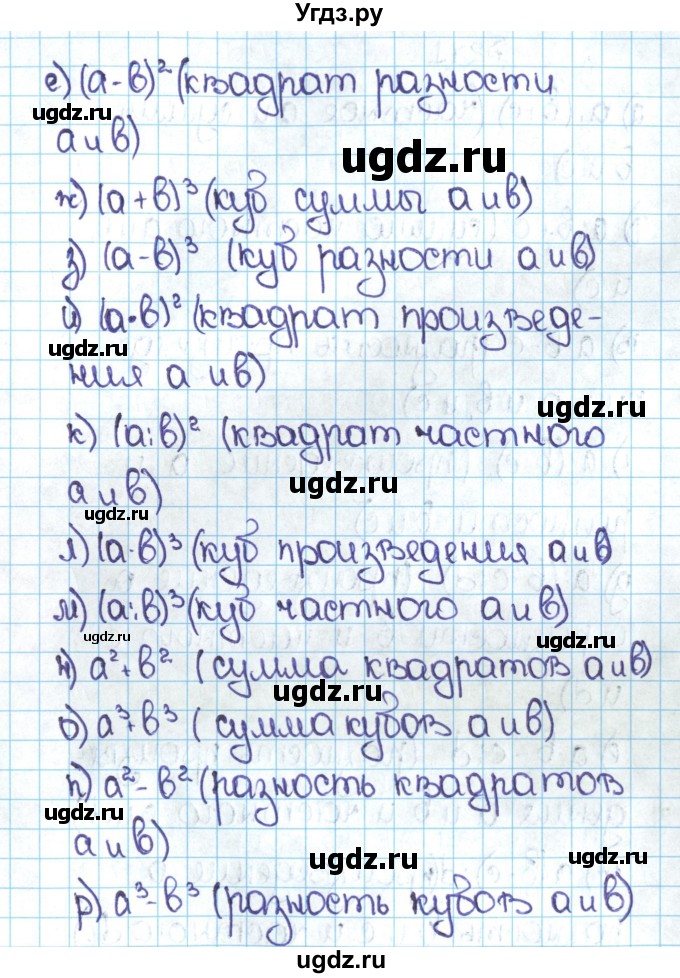 Угдз.ру
е) (а-в)² (квадрат разности
ugdz.ru
а и в)
ugdz.ru
ж) (а+в)³ (куб суммы а и в)
з) (а-в)³ (куб разности а и в)
и) (а·в)² (квадрат произведе-
ugdz.ru
ния а и в)
ugdz.ru
к) (а:в)² (квадрат частного
ugdz.ru
а и в)
ugdz.ru
л) (а·в)³ (куб произведения а и в
м) (а:в)³ (куб частного а и в)
ugdz.ru
ugdz.ru
н) а²+в² (сумма квадратов а и в)
ugdz.ru
о) а³+в³ (сумма кубов а и в)
п) а²-в² (разность квадратов
ugdz.ru
а и в)
ugdz.ru
ugdz.ru
р) а³-в³ (разность кубов а и в)
ugdz.ru